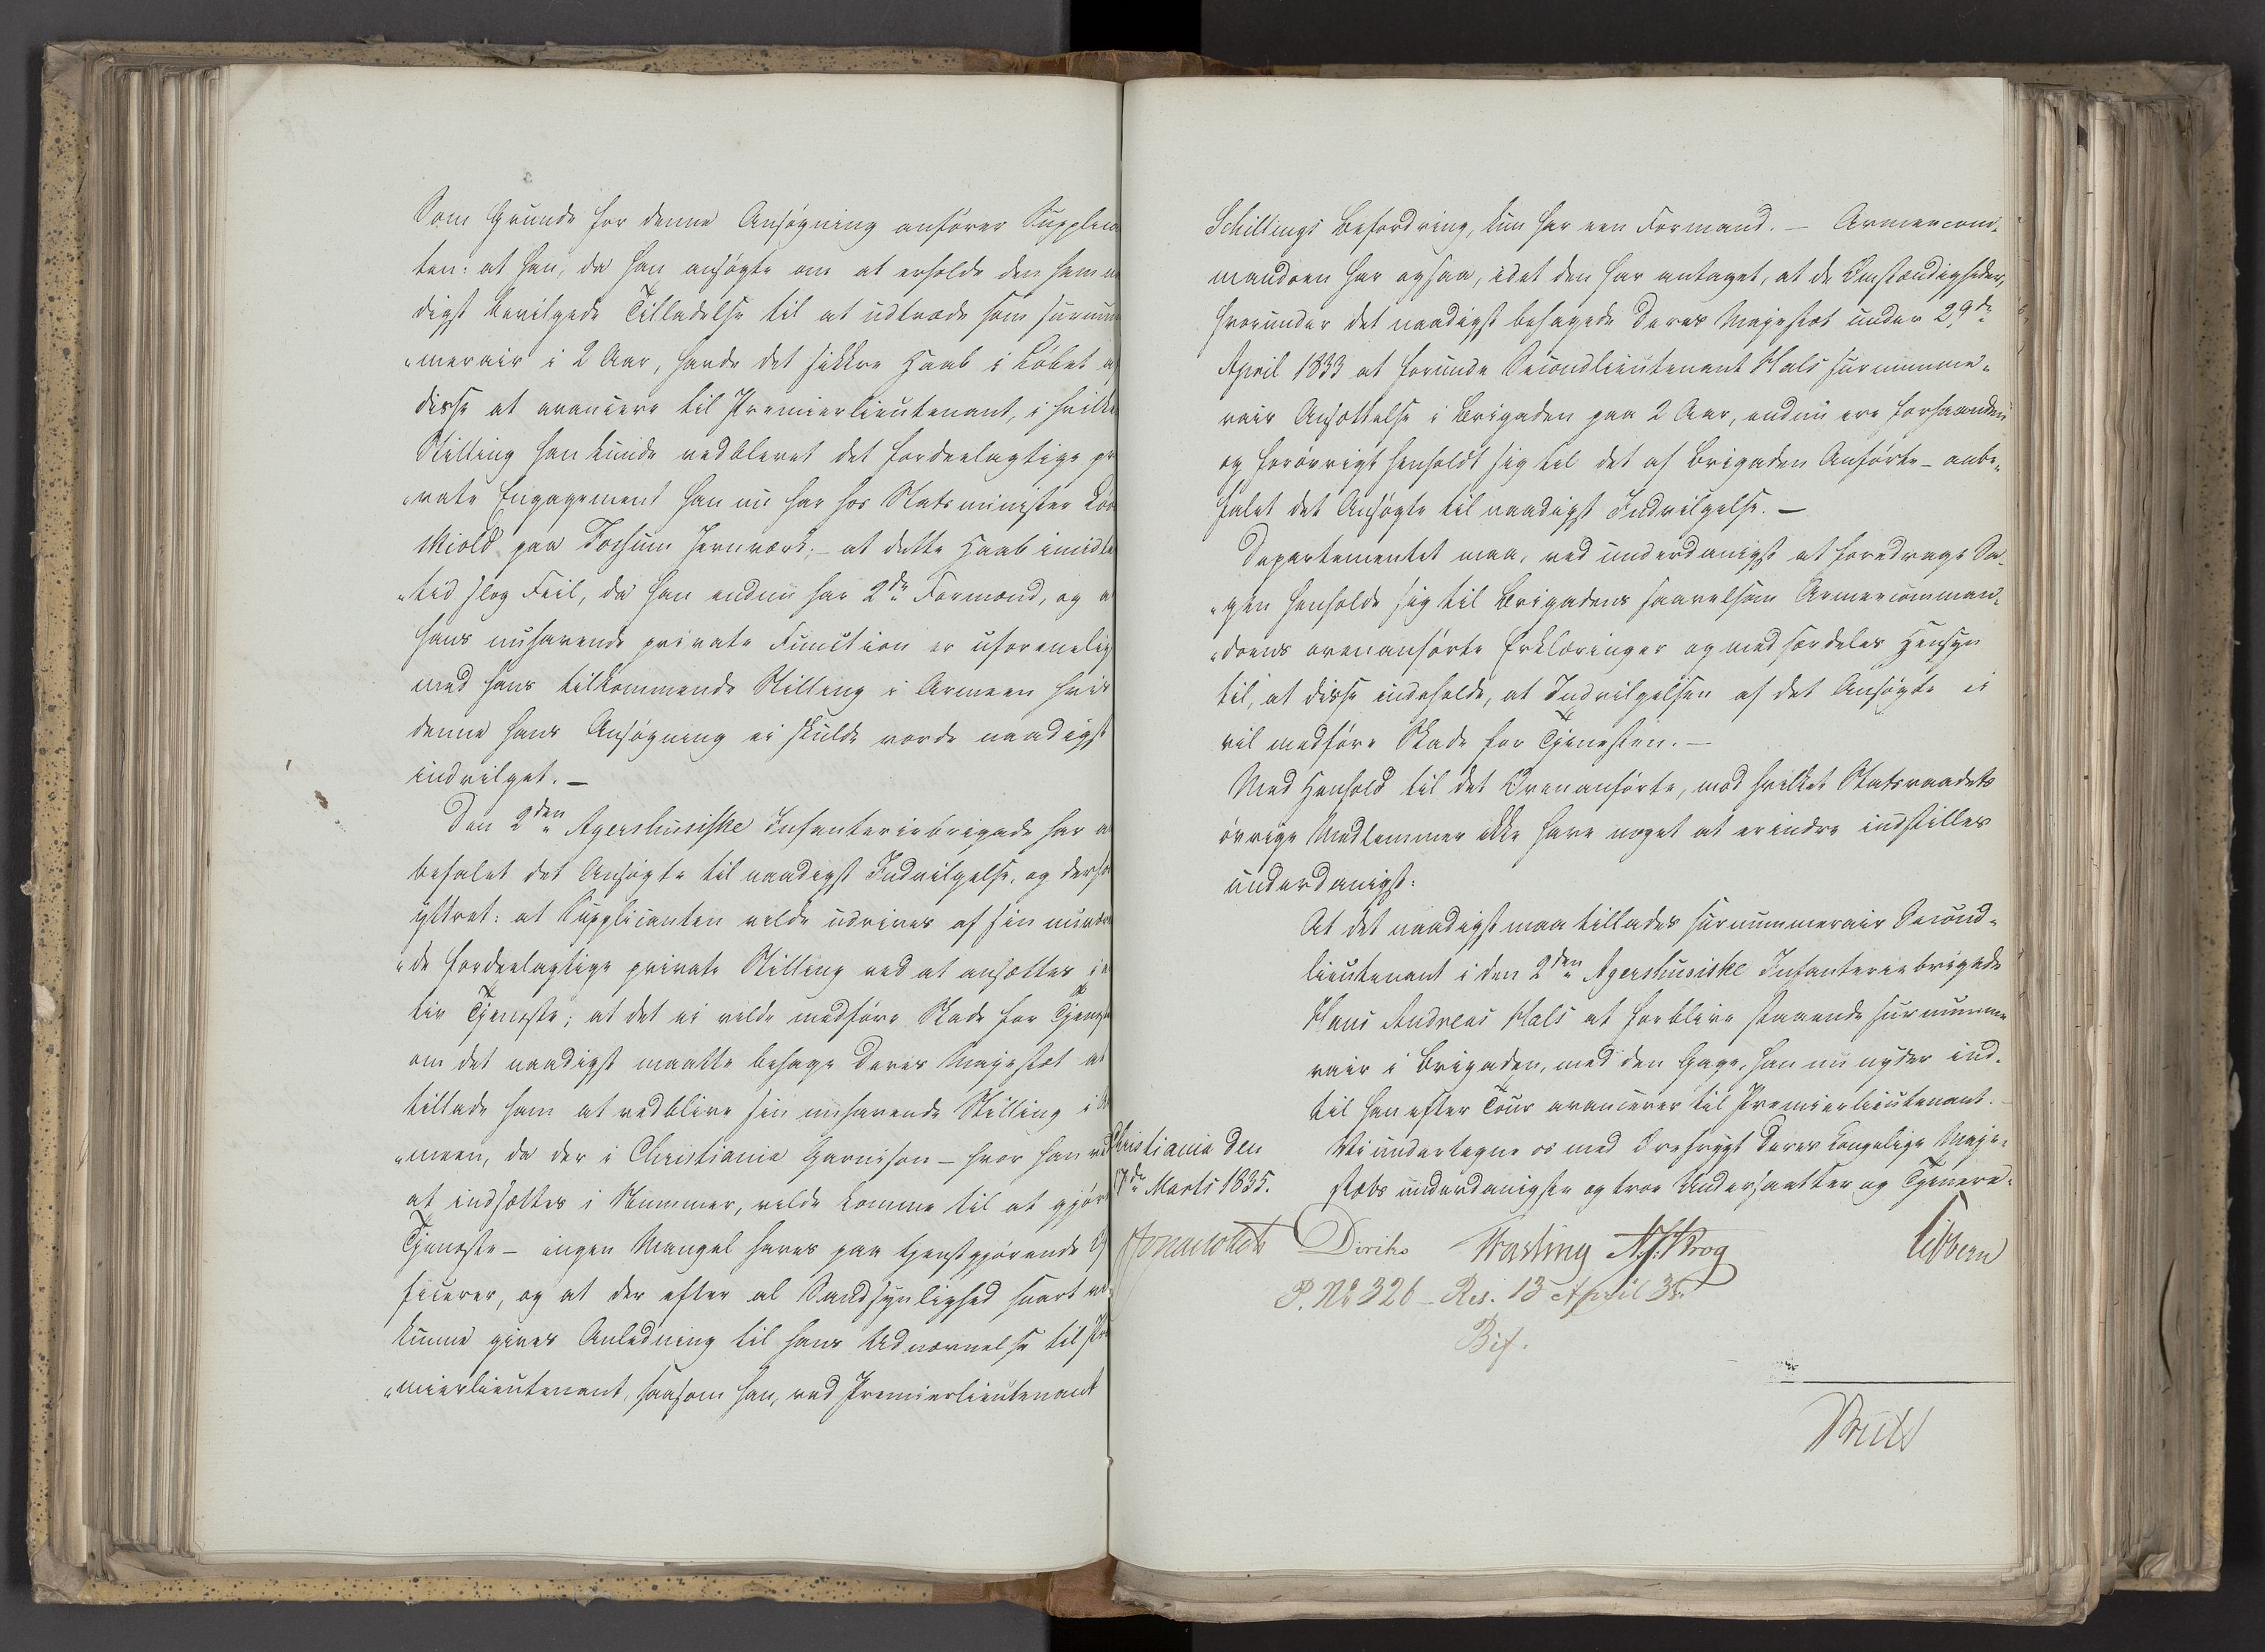 Som Grunde for denne Ansøgning anfører Supplica
ten: at han, da han ansøgte om at erholde den ham na
digst bevilgede Tilladelse til at udtræde som surnum
"merair i 2 Aar, havde det sikkre Haab i Løbet af
disse at avancere til Premierlieutenant, i hvilke
Stilling han kunde vedblevet det fordeelagtige pr
"vate Engagement han nu har hos Statsminister Løv
skiold paa Fossum Jernværk; - at dette Haab imidle
"tid slog Feil, da han endnu har 2de Formænd, og a
hans nuhavende private Function er uforenelig
med hans tilkommende Stilling i Armeen hvis
denne hans Ansøgning ei skulde vorde naadigst
indvilget. -
Den 2den Agershusiske Infanteriebrigade har a
befalet det Ansøgte til naadigst Indvilgelse, og derho
yttret: at Supplicanten vilde udrives af sin nuvære
"de fordeelagtige private Stilling ved at ansættes i a
tiv Tjeneste; at det ei vilde medføre Skade for Tjenest
om det naadigst maatte behage Deres Majestæt at
tillade ham at vedblive sin nuhavende Stilling i Ar
"meen, da der i Christiania Garnison - hvor han ved
at indsættes i Nummer, vilde komme til at gjøre
Tjeneste - ingen Mangel haves paa tjenstgjørende Of
ficerer, og at der efter al Sandsynlighed snart vil
kunne gives Anledning til hans Udnævnelse til Pre
"mierlieutenant, saasom han, ved Premierlieutenant
Schillings Befordring, kun har een Formand. - Armeecom-
mandoen har ogsaa, idet den har antaget, at de Omstændigheder,
hvorunder det naadigst behagede Deres Majestæt under 29de
April 1833 at forunde Secondlieutenant Hals surnumme-
rair Ansættelse i Brigaden paa 2 Aar, endnu ere forhaanden
og forøvrigt henholdt sig til det af Brigaden Anførte - anbe-
falet det Ansøgte til naadigst Indvilgelse. -
Departementet maa, ved underdanigst at foredrage Sa-
"gen henholde sig til Brigadens saavelsom Armeecomman-
"doens ovenanførte Erklæringer og med særdeles Hensyn
til, at disse indeholde, at Indvilgelsen af det Ansøgte ei
vil medføre Skade for Tjenesten. -
Med Henhold til det Ovenanførte, mod hvilket Statsraadets
øvrige Medlemmer ikke have noget at erindre indstilles
underdanigst:
At det naadigst maa tillades surnummerair Second-
lieutenant i den 2den Agershusiske Infanteriebrigade
Hans Andreas Hals at forblive staaende surnumme
rair i Brigaden, med den Gage, han nu nyder ind-
til han efter Tour avancerer til Premierlieutenant. -
Christiania den
17de Marts 1835.
Vi undertegne os med Ærefrygt Deres Kongelige Maje-
stæts underdanigste og troe Undersaatter og Tjenere.
Diriks Fasting N. J. Krog Sibbern
P. No 326 - Res. 13 April 35.
Bif.